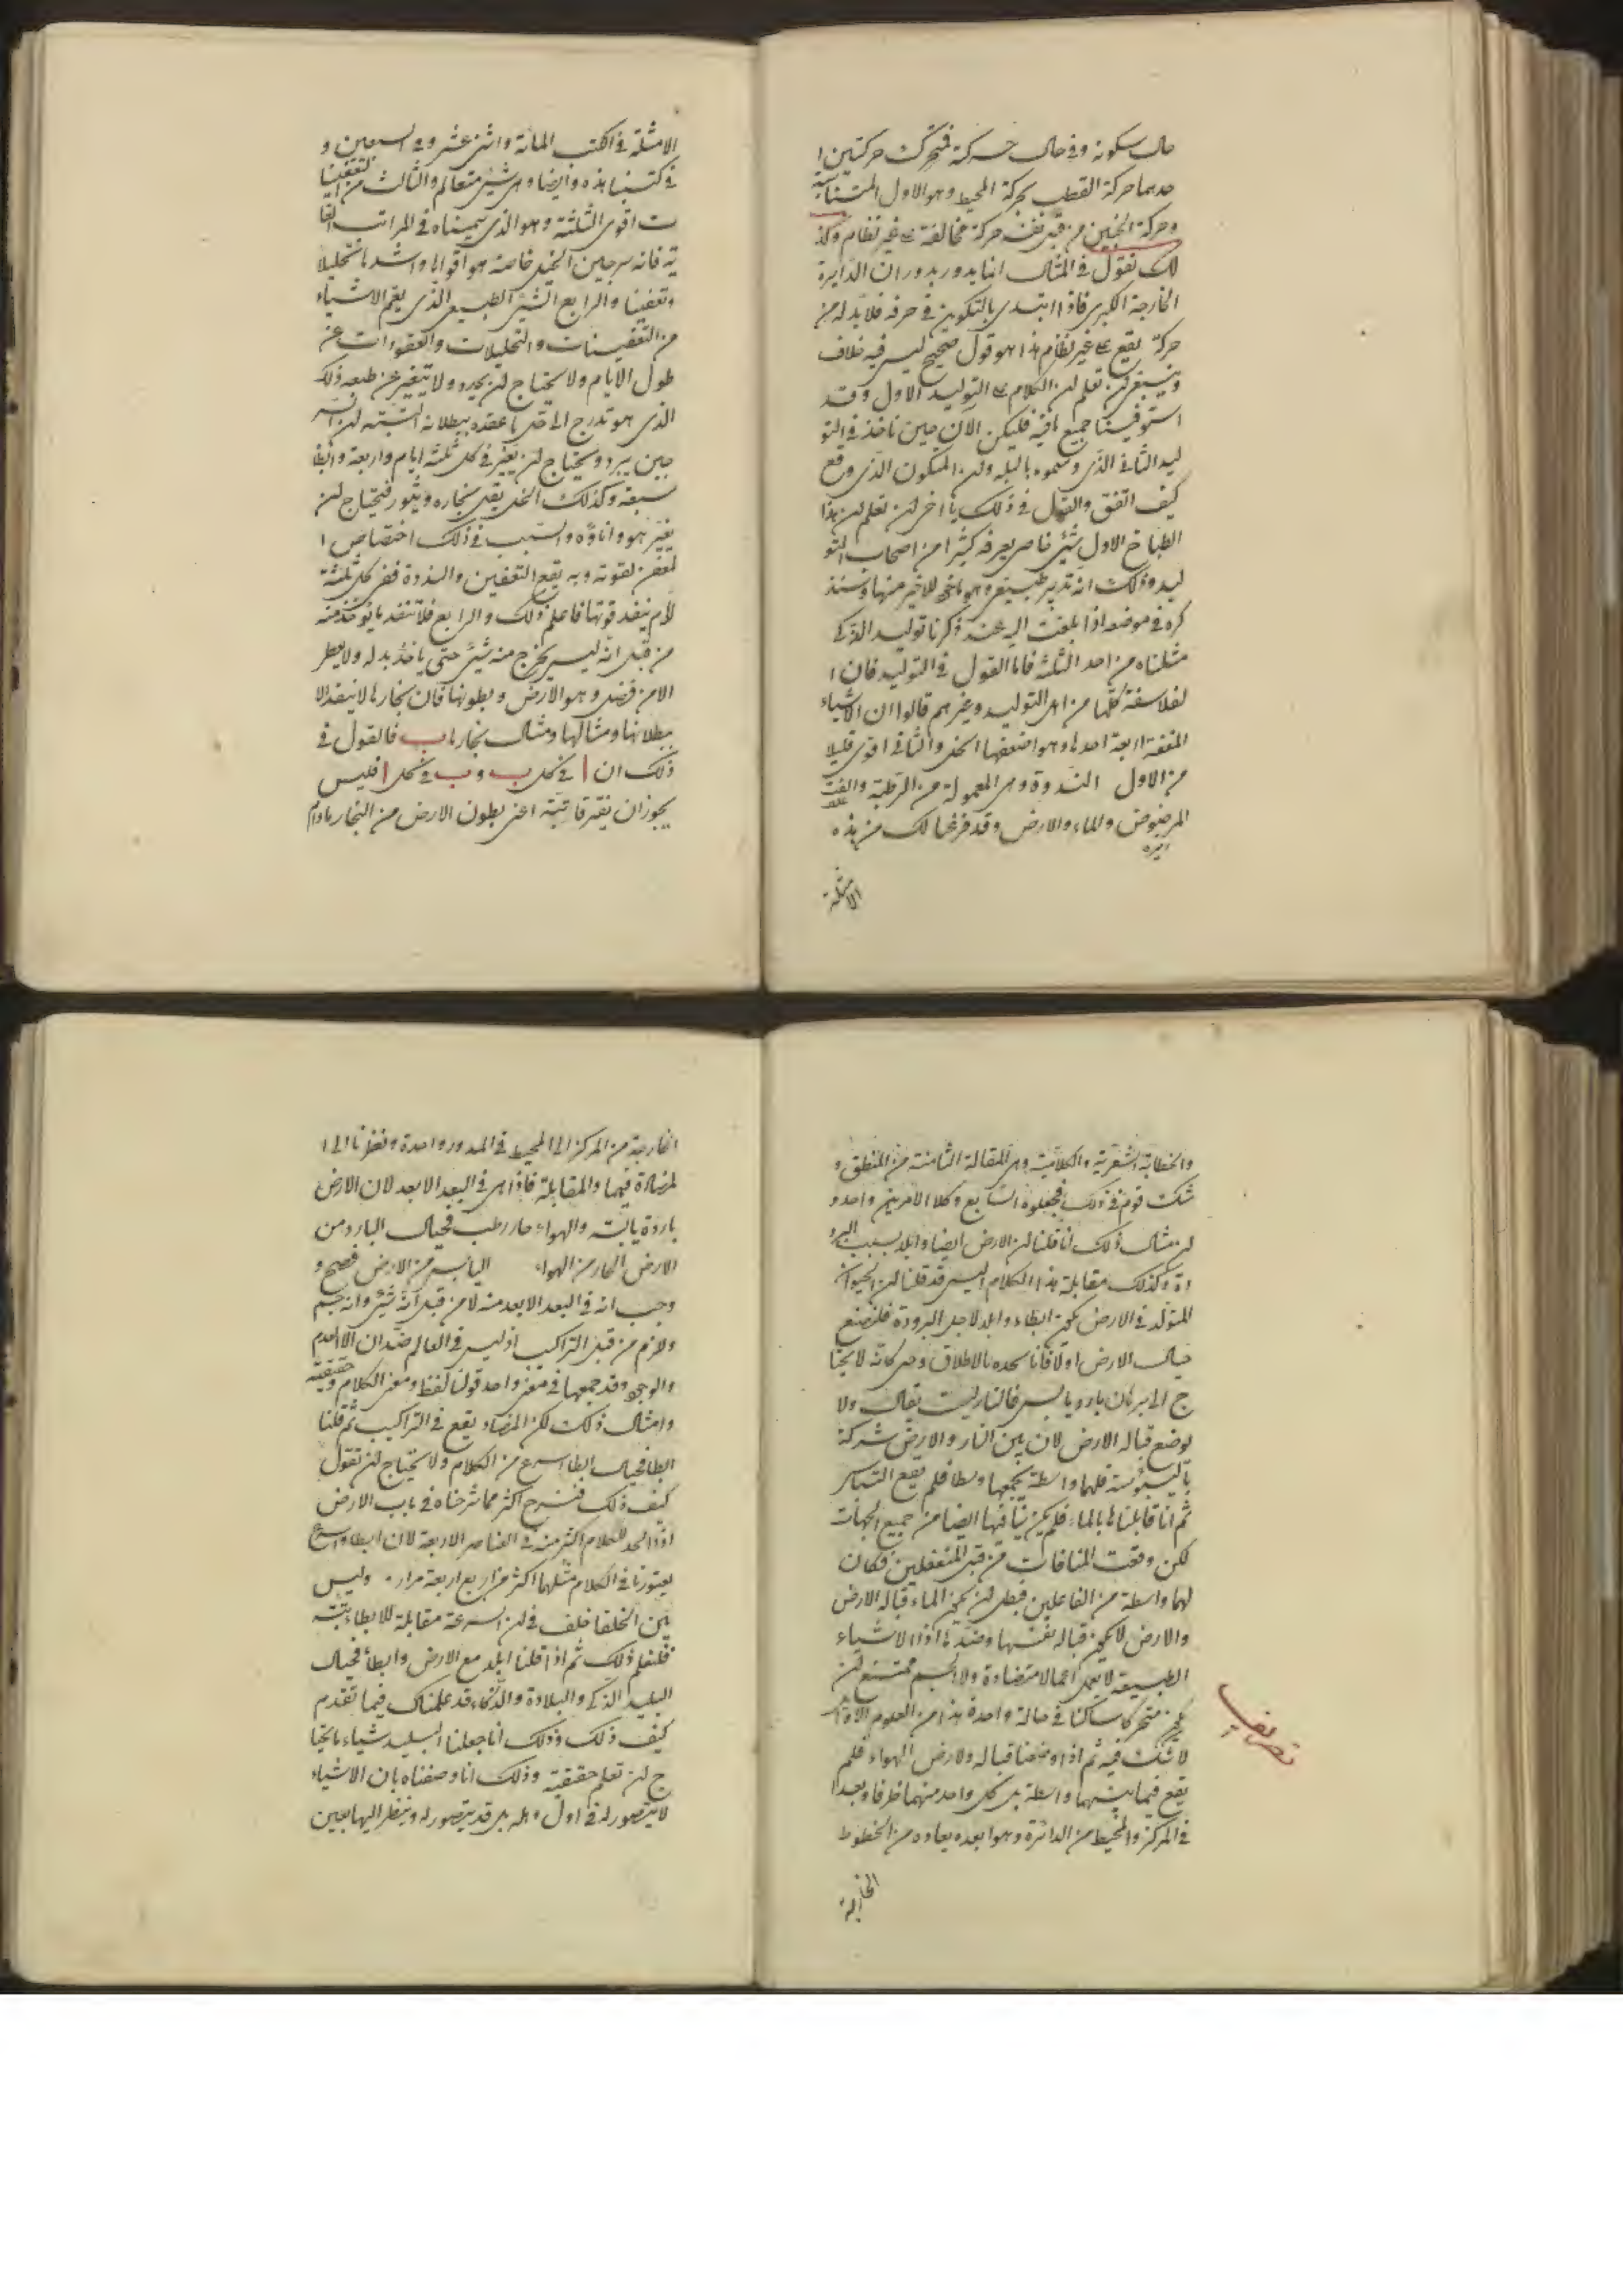 حال سكونه وفي حال حركة فتحرك حركتين ا
حدهما حركة القطب بحركة المحيط وهو الاول
وحركة الجنين من قبل نفسه حركة مخالفة على غير نظام وكذ
لك نقول في المثال انما يدور بدوران الدايرة
الخارجة الكبرى فاذا ابتدى بالتكوين في حرفه فلا بد له من
حركة تقع على غير نظام هذا هو قول صحيح ليس فيه خلاف
وينبغي ان تعلم ان الكلام على التوليد الاول وقد
استوفينا جميع ما فيه فليكن الان حين ناخذ في التو
ليد الثاني الذي وسموه بالبله وان المتكون الذي وقع
كيف اتفق والقول في ذلك يا اخي ان تعلم ان هذا
الطباخ الاول شيء خاص يعرفه كثيرا من اصحاب التو
ليد وذلك انه تدبير طبيعي وهو للاخير منها وسنذ
كره في موضعه اذا بلغت اليه عند ذكرنا توليد الذكي
مثلناه من احد الثلثة فاما القول في التوليد فان ا
لفلاسفة كلها من اهل التوليد وغيرهم قالوا ان الاشياء
المعفنة اربعة احدها وهو اضعفها الخل والثاني اقوى قليلا
من الاول الندوة وهي المعمولة من الرطبة والقت
المرضوض والماء والارض وقد فرغنا لك من هذه
الامثلة
الامثلة في الكتب المائة واثني عشر وفي السبعين و
في كتبنا هذه وايضا وهي شيء متعالم والثالث من التعفينا
ت اقوى الثلثة وهو الذي سميناه في المراتب الثا
نية فانه سرجين الخيل خاصة هو اقواها واشدها تحليلا
وتعفينا والرابع الشيء الطبيعي الذي يعم الاشياء
من التعفينات والتحليلات والعقودات عن
طول الايام ولا يحتاج ان يجدد ولا يتغير عن طبعه ذلك
الذي هو تدرج الى حل ما عقده ببطلانه البتة لان السر
جين يبرد ويحتاج ان يغير في كل ثلثة ايام واربعة وابطا
سبعة وكذلك الخل يقل بخاره ويثور فيحتاج ان
يغير هو واناؤه والسبب في ذلك اختصاص ا
لعفن لقوته وبه يقع التعفين والندوة ففي كل ثلثة
لأم ينفد قوتها فاعلم ذلك والرابع فلا تنفد ما يؤخذ منه
من قبل انه ليس يخرج منه شيء حتى ياخذ بدله ولا يعطى
الا من فضل وهو الارض وبطونها فان بخارها لا ينفد الا
ببطلانها ومثالها ومثال بخارها ب فالقول في
ذلك ان ا في كل ب و ب في كل ا فليس
يجوز ان يفترقا بتة اعني بطون الارض من البخار مادام
والخطابة الشعرية والكلامية وهي المقالة الثامنة من المنطق و
شكت قوم في ذلك فجعلوه السابع وكلا الامرين واحد و
ان مثال ذلك انا قلنا ان الارض ايضا وابلد بسبب البرو
دة وكذلك مقابلة هذا الكلام اليس قد قلنا ان الحيوان
المتولد في الارض يكون ابطاء وابلد لاجل البرودة فلنضع
حيال الارض اولا فانا نحده بالاطلاق وهي كانه لا يحتا
ج الى برهان بارد يابس فالنار ليست يقال ولا
يوضع قباله الارض لان بين النار والارض شركة
باليبوسة فلهما واسطة يجمعها وسطا فلم يقع التباس
ثم انا قابلناها بالماء فلم يكن ينافيها ايضا من جميع الجهات
لكن وقعت المنافات من قبل المنفعلين فكان
لهما واسطة من الفاعلين فبطل ان يكون الماء قبالة الارض
والارض لا يكون قبالة نفسها وضدها اذ الاشياء
الطبيعية لا يعمل اعمالا متضادة ولا الجسم ممتنع ان
يكون متحركا ساكنا في حالة واحدة هذا من العلوم الاوائل
لا شك فيه ثم اذا وضعنا قباله ولارض الهواء فلم
يقع فيما بينهما واسطة بل كل واحد منهما طرفا وبعدا
في المركز والمحيط من الدائرة وهو ابعده بعاده من الخطوط
الخارجة
الخارجة من المركز الى المحيط في المدور واحدة ونظرنا الى ا
لمضادة فيهما والمقابلة فاذا هي في البعد الابعد لان الارض
باردة يابسة والهواء حار رطب فحيال البارد من
الارض الحار من الهواء اليابس من الارض فصح و
وجب انه في البعد الابعد منه لا من قبل انه شيء وانه جسم
ولازم من قبل التراكيب اذ ليس في العالم ضدان الا العدم
والوجود وقد جمعها في معنى واحد قولنا لفظ ومعنى الكلام وحقيقته
وامثال ذلك لكن المضاد يقع في التراكيب ثم قلنا
ابطا فحيال ابطا اسرع من الكلام ولا يحتاج ان نقول
كيف ذلك فنشرح اكثر مما شرحناه في باب الارض
اذ الحد للكلام اكثر منه في العناصر الاربعة لان ابطا واسرع
يعتورنا في الكلام مثلهما اكثر من اربع اربعة مرار وليس
بين الخلقا خلف في ان السرعة مقابلة للابطاء بتة
فلنعلم ذلك ثم اذا قلنا ابلد مع الارض وابطأ فحيال
البليد الذكي والبلادة والذكاء قد علمناك فيما تقدم
كيف ذلك وذلك انا جعلنا البليد شياء ما يحتا
ج ان تعلم حقيقته وذلك انا وصفناه بان الاشياء
لا يتصور له في اول وهلة بل قد يتصور له وينظر اليها بعين